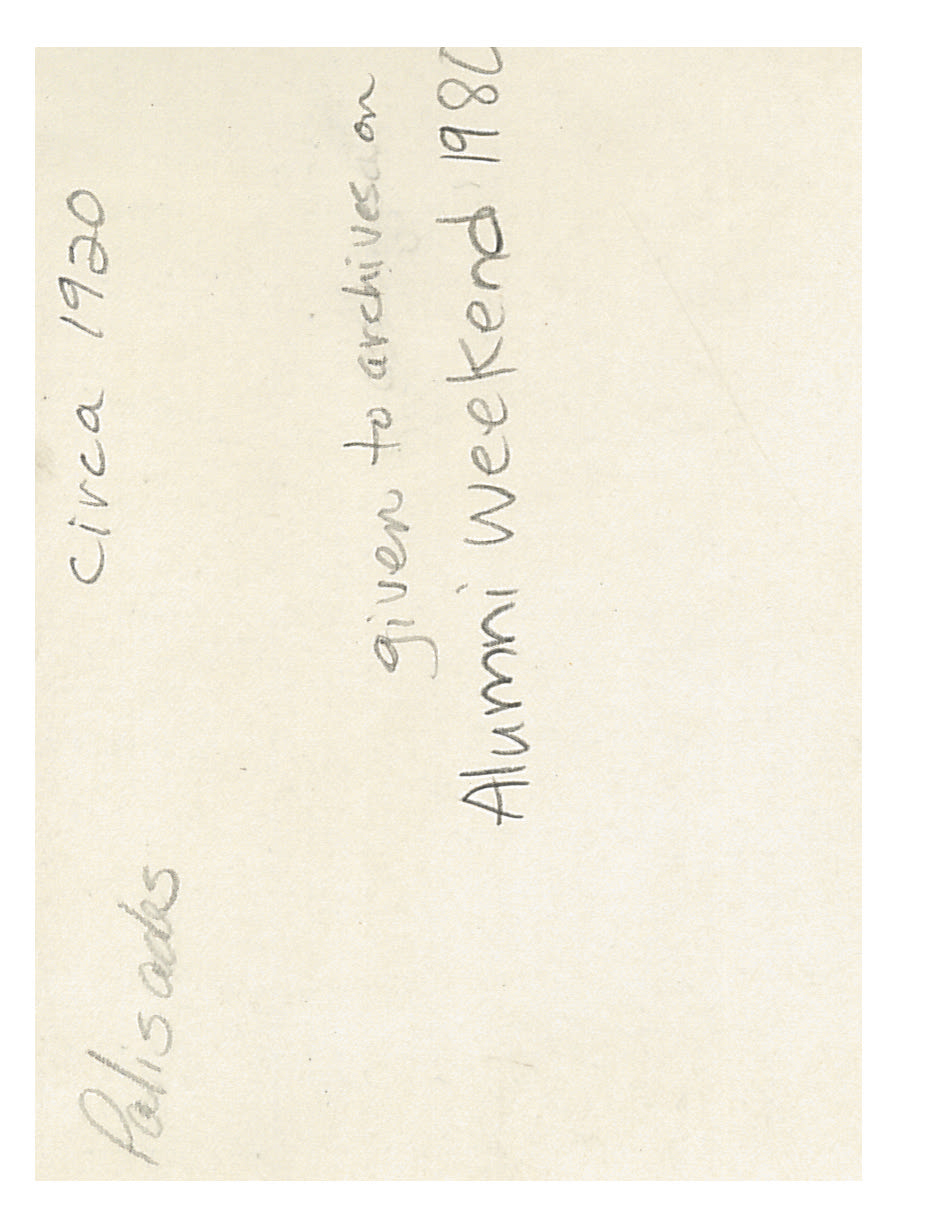 Palisades circa 1920
given to archives on
Alumni Weekend